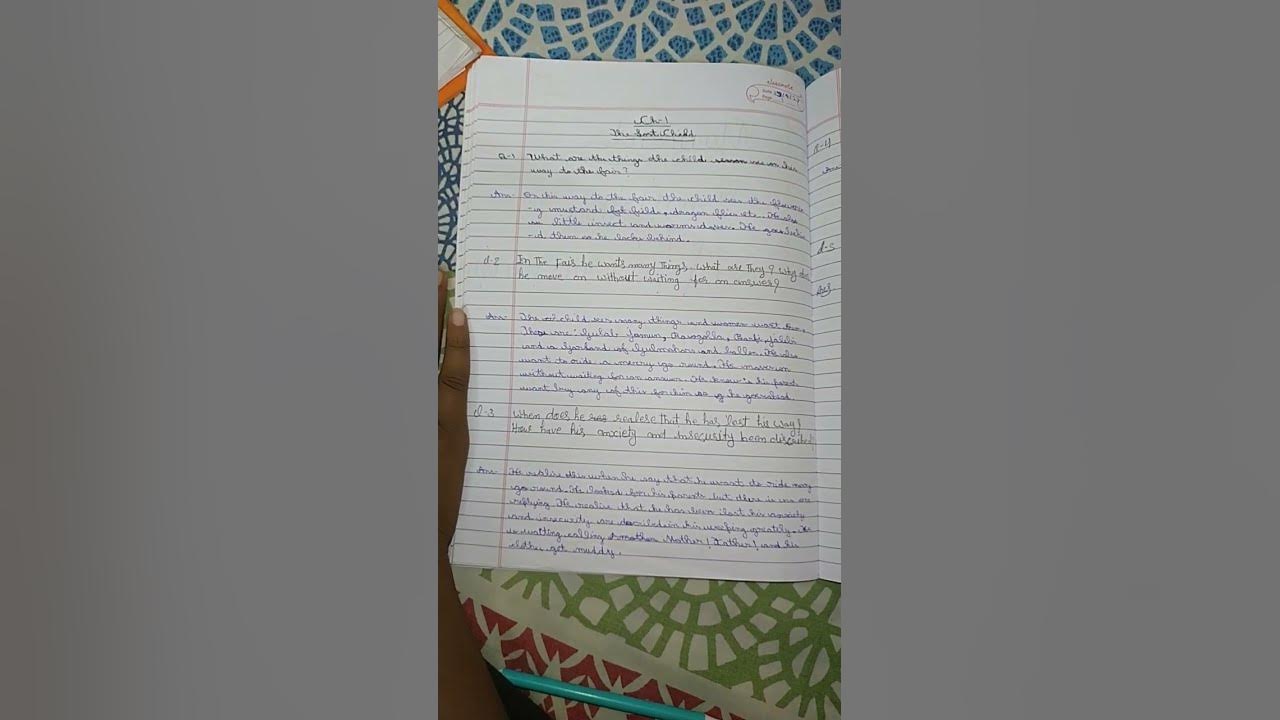 classmate
Date
Page
Ch-1
The Lost Child
Q-1 What are the things the child see on his
way to the fair?
Ans- On his way to the fair the child sees the flowerin
-g mustard field, dragon flies etc. He also
see little insect and worms. He goes
-d them so he lacks behind.
Q-2 In The Fair he wants many Things. What are They? Why does
he move on without waiting for an answer?
Ans- The child sees many things and want
These are: Gulab Jamun, Rasogolla, Burfi, Jalebi
and a Garland of Gulmohar and ballon. He also
want to ride a merry go round. He moves on
without waiting for an answer. He know's his parent
want buy any of this for him so
Q-3 When does he realese that he has lost his way?
How have his anxiety and insecurity been discribed
Ans- He realise this when he say that he want to ride mary
go round. He looked for his parents but there is no one
replying. He realise that he has been lost his anxiety
and insecurity are described in his weeping greately. He
is calling Mother! Father! and his
clothes get muddy.
Q-4
Ans
Q-5
Ans